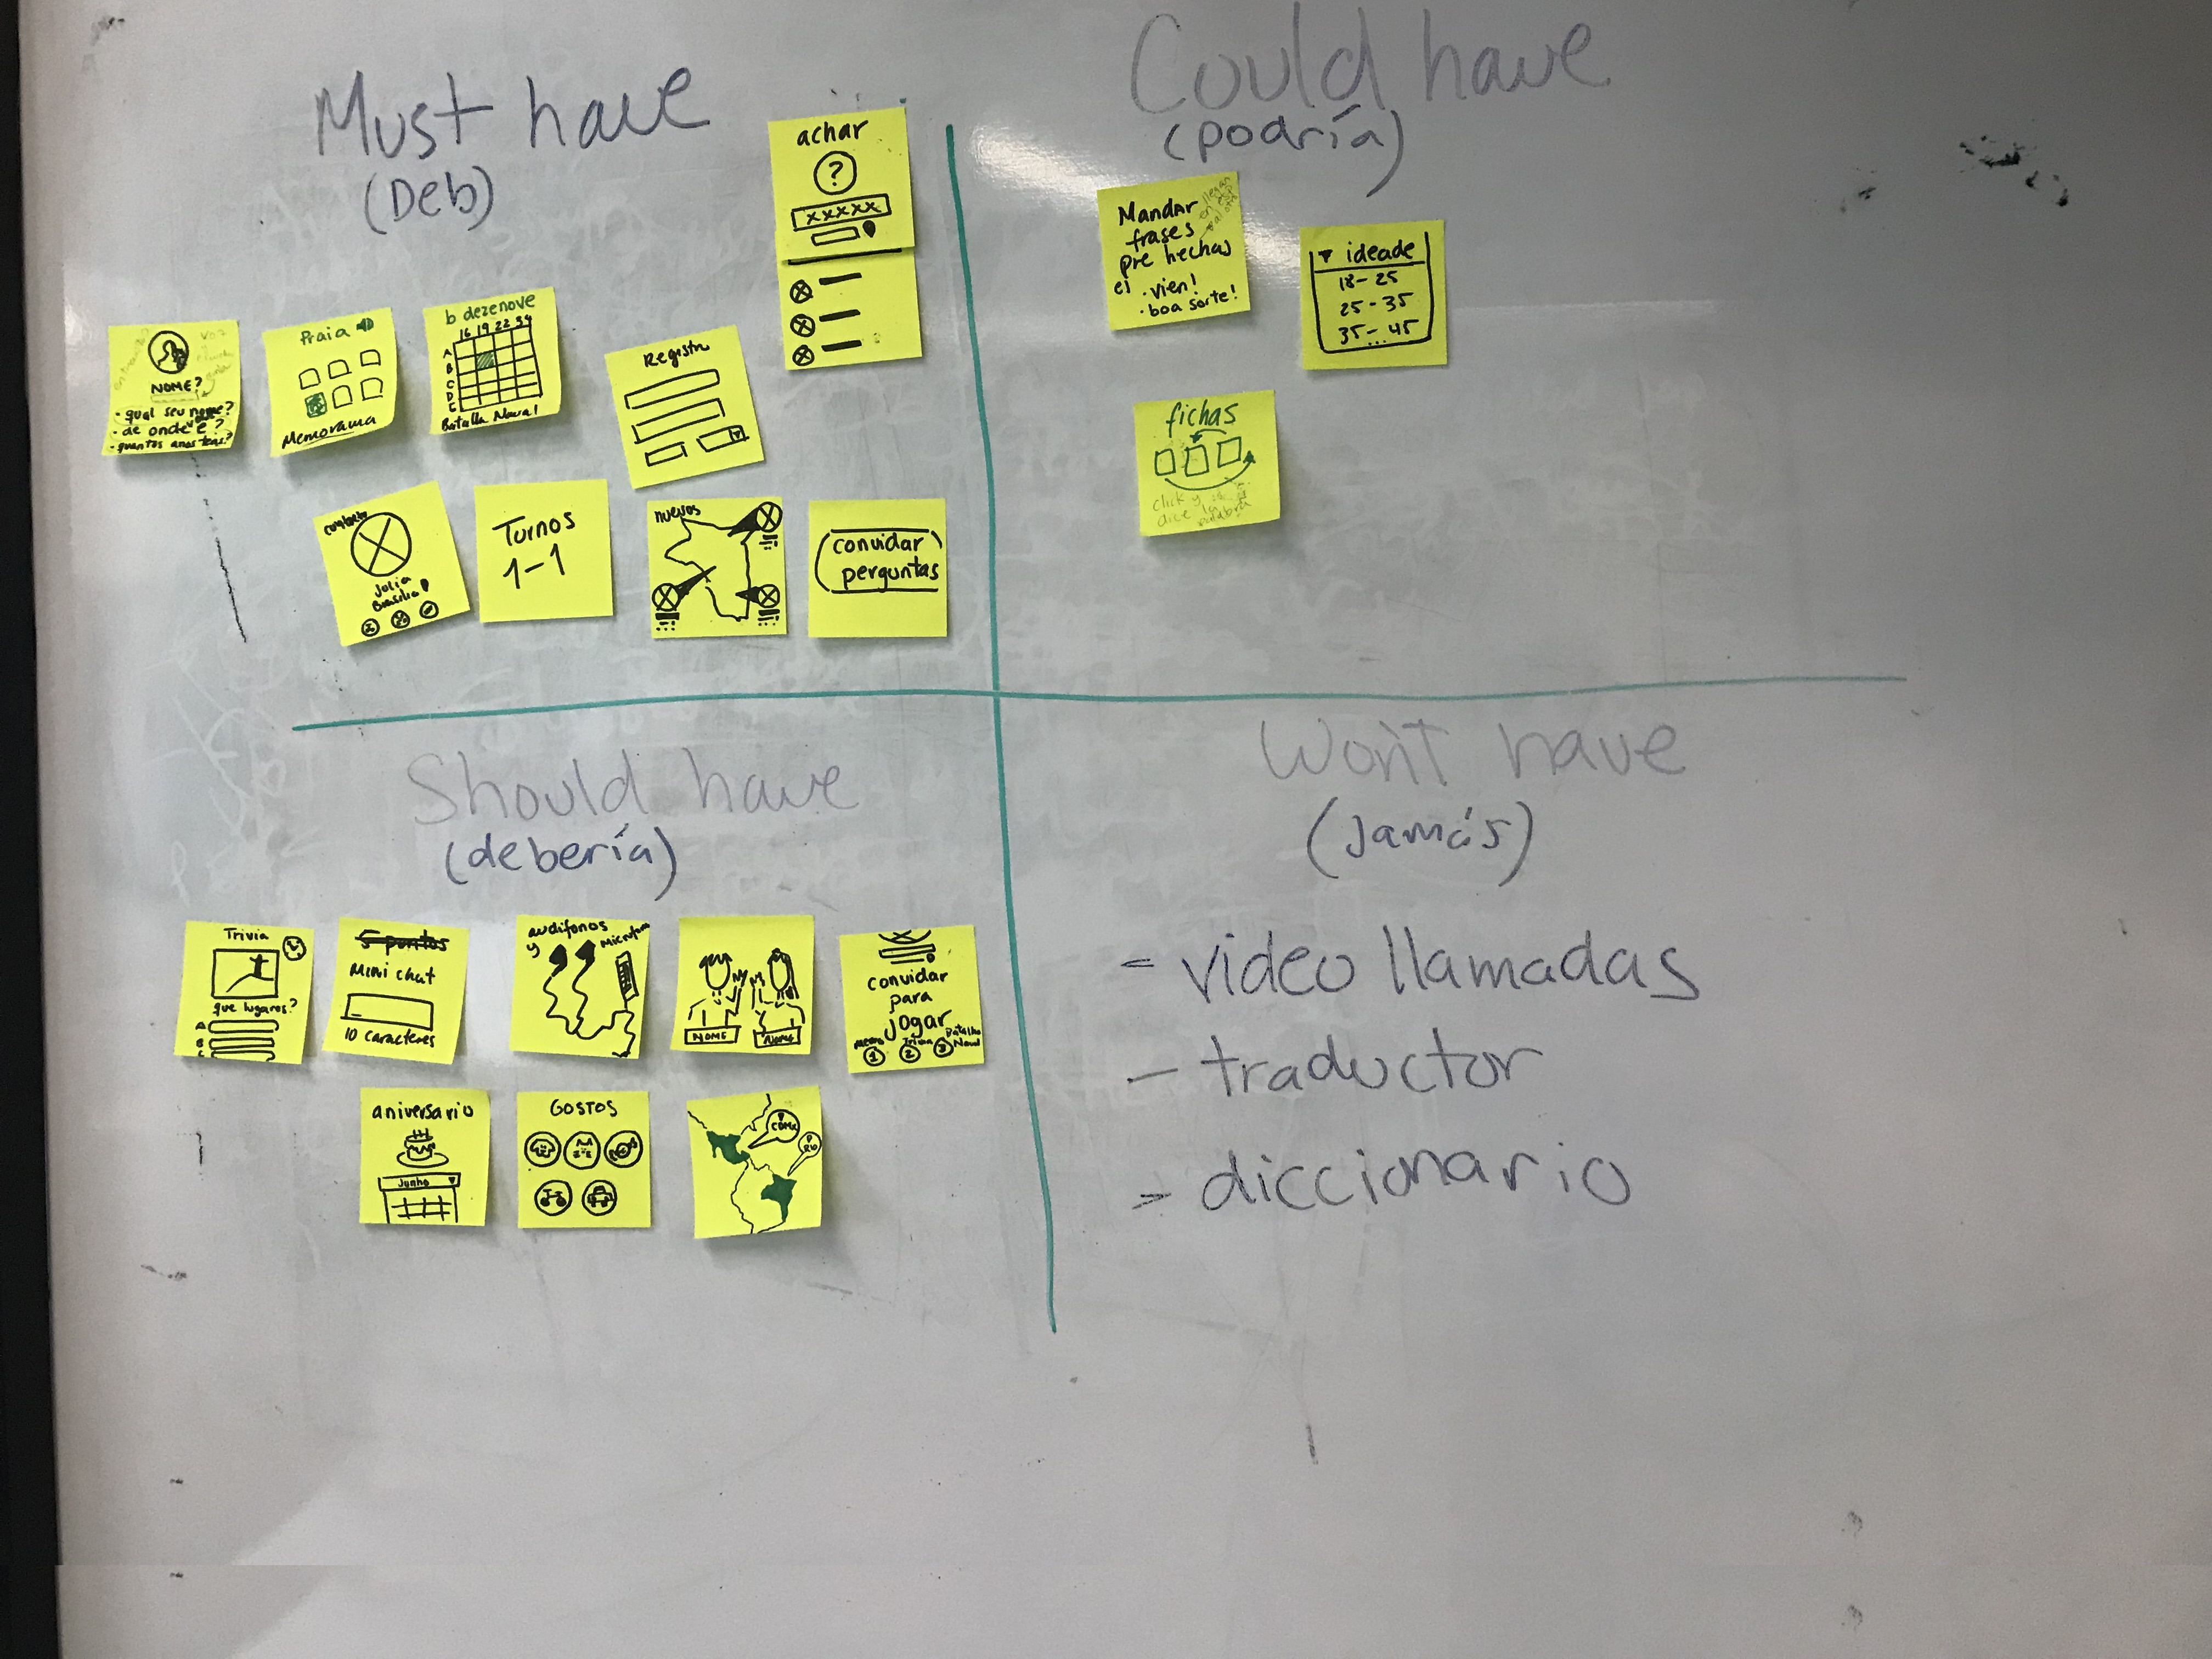 Must have
(Deb)
achar
?
xxxxx
NOME?
• qual seu nome?
• de onde é?
• quantos anos teas?
Praia
Memorama
b dezenove
16 19 22 34
A
B
C
D
E
Batalla Naval
Registro
contacto
Julia
Brasilia
Turnos
1-1
nuevos
convidar
perguntas
Could have
(podría)
Mandar
frases
pre hechas
ej • vien!
• boa sorte!
▼ ideade
18 - 25
25 - 35
35 - 45
...
fichas
click y se
dice la
palabra
Should have
(debería)
Trivia
que lugares?
A
B
C
5 puntos
Mini chat
10 caracteres
audifonos
y microfono
NOME NOME
convidar
para
jogar
memo Trivia Batalha Naval
1 2 3
aniversario
Junho
GOSTOS
CDMX
RIO
Won't have
(Jamás)
- video llamadas
- traductor
- diccionario